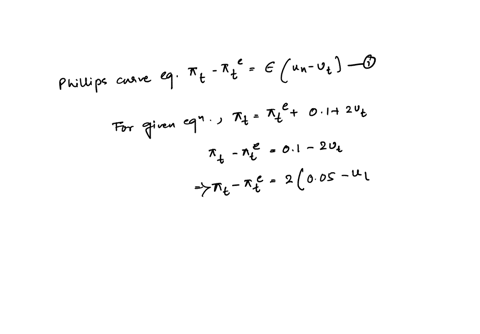 Phillips curve eq. π_t - π_t^e = ϵ (u_n - u_t) —①
For given eqn., π_t = π_t^e + 0.1 + 2u_t
π_t - π_t^e = 0.1 - 2u_t
⇒ π_t - π_t^e = 2(0.05 - u_t